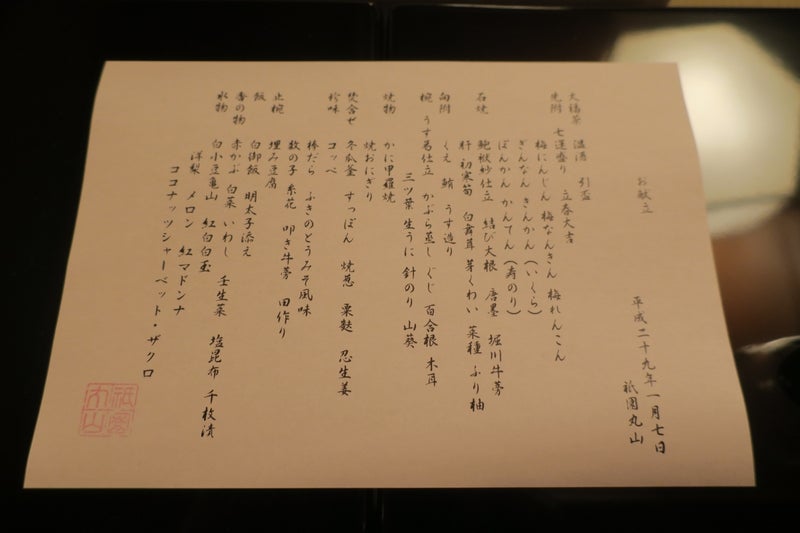 お献立
平成二十九年一月七日
祇園丸山
大福茶 温酒 引盃
先附 七運盛り 立春大吉
梅にんじん 梅なんきん 梅れんこん
ぎんなん きんかん(いくら)
ぽんかん かんてん(寿のり)
石焼 鮑袱紗仕立 結び大根 唐墨 堀川牛蒡
肝 初寒筍 白舞茸 芽くわい 菜種 ふり柚
向附 くえ 鮪 うす造り
椀 うす葛仕立 かぶら蒸し ぐじ 百合根 木耳
三ツ葉 生うに 針のり 山葵
焼物 かに甲羅焼
焼おにぎり
焚合せ 冬瓜釜 すっぽん 焼葱 粟麩 忍生姜
珍味 コッペ
棒だら ふきのとうみそ風味
数の子 糸花 叩き牛蒡 田作り
止椀 埋み豆腐
飯 白御飯 明太子添え
香の物 赤かぶ 白菜 いわし 壬生菜 塩昆布 千枚漬
水物 白小豆亀山 紅白白玉
洋梨 メロン 紅マドンナ
ココナッツシャーベット・ザクロ
祇園
丸山